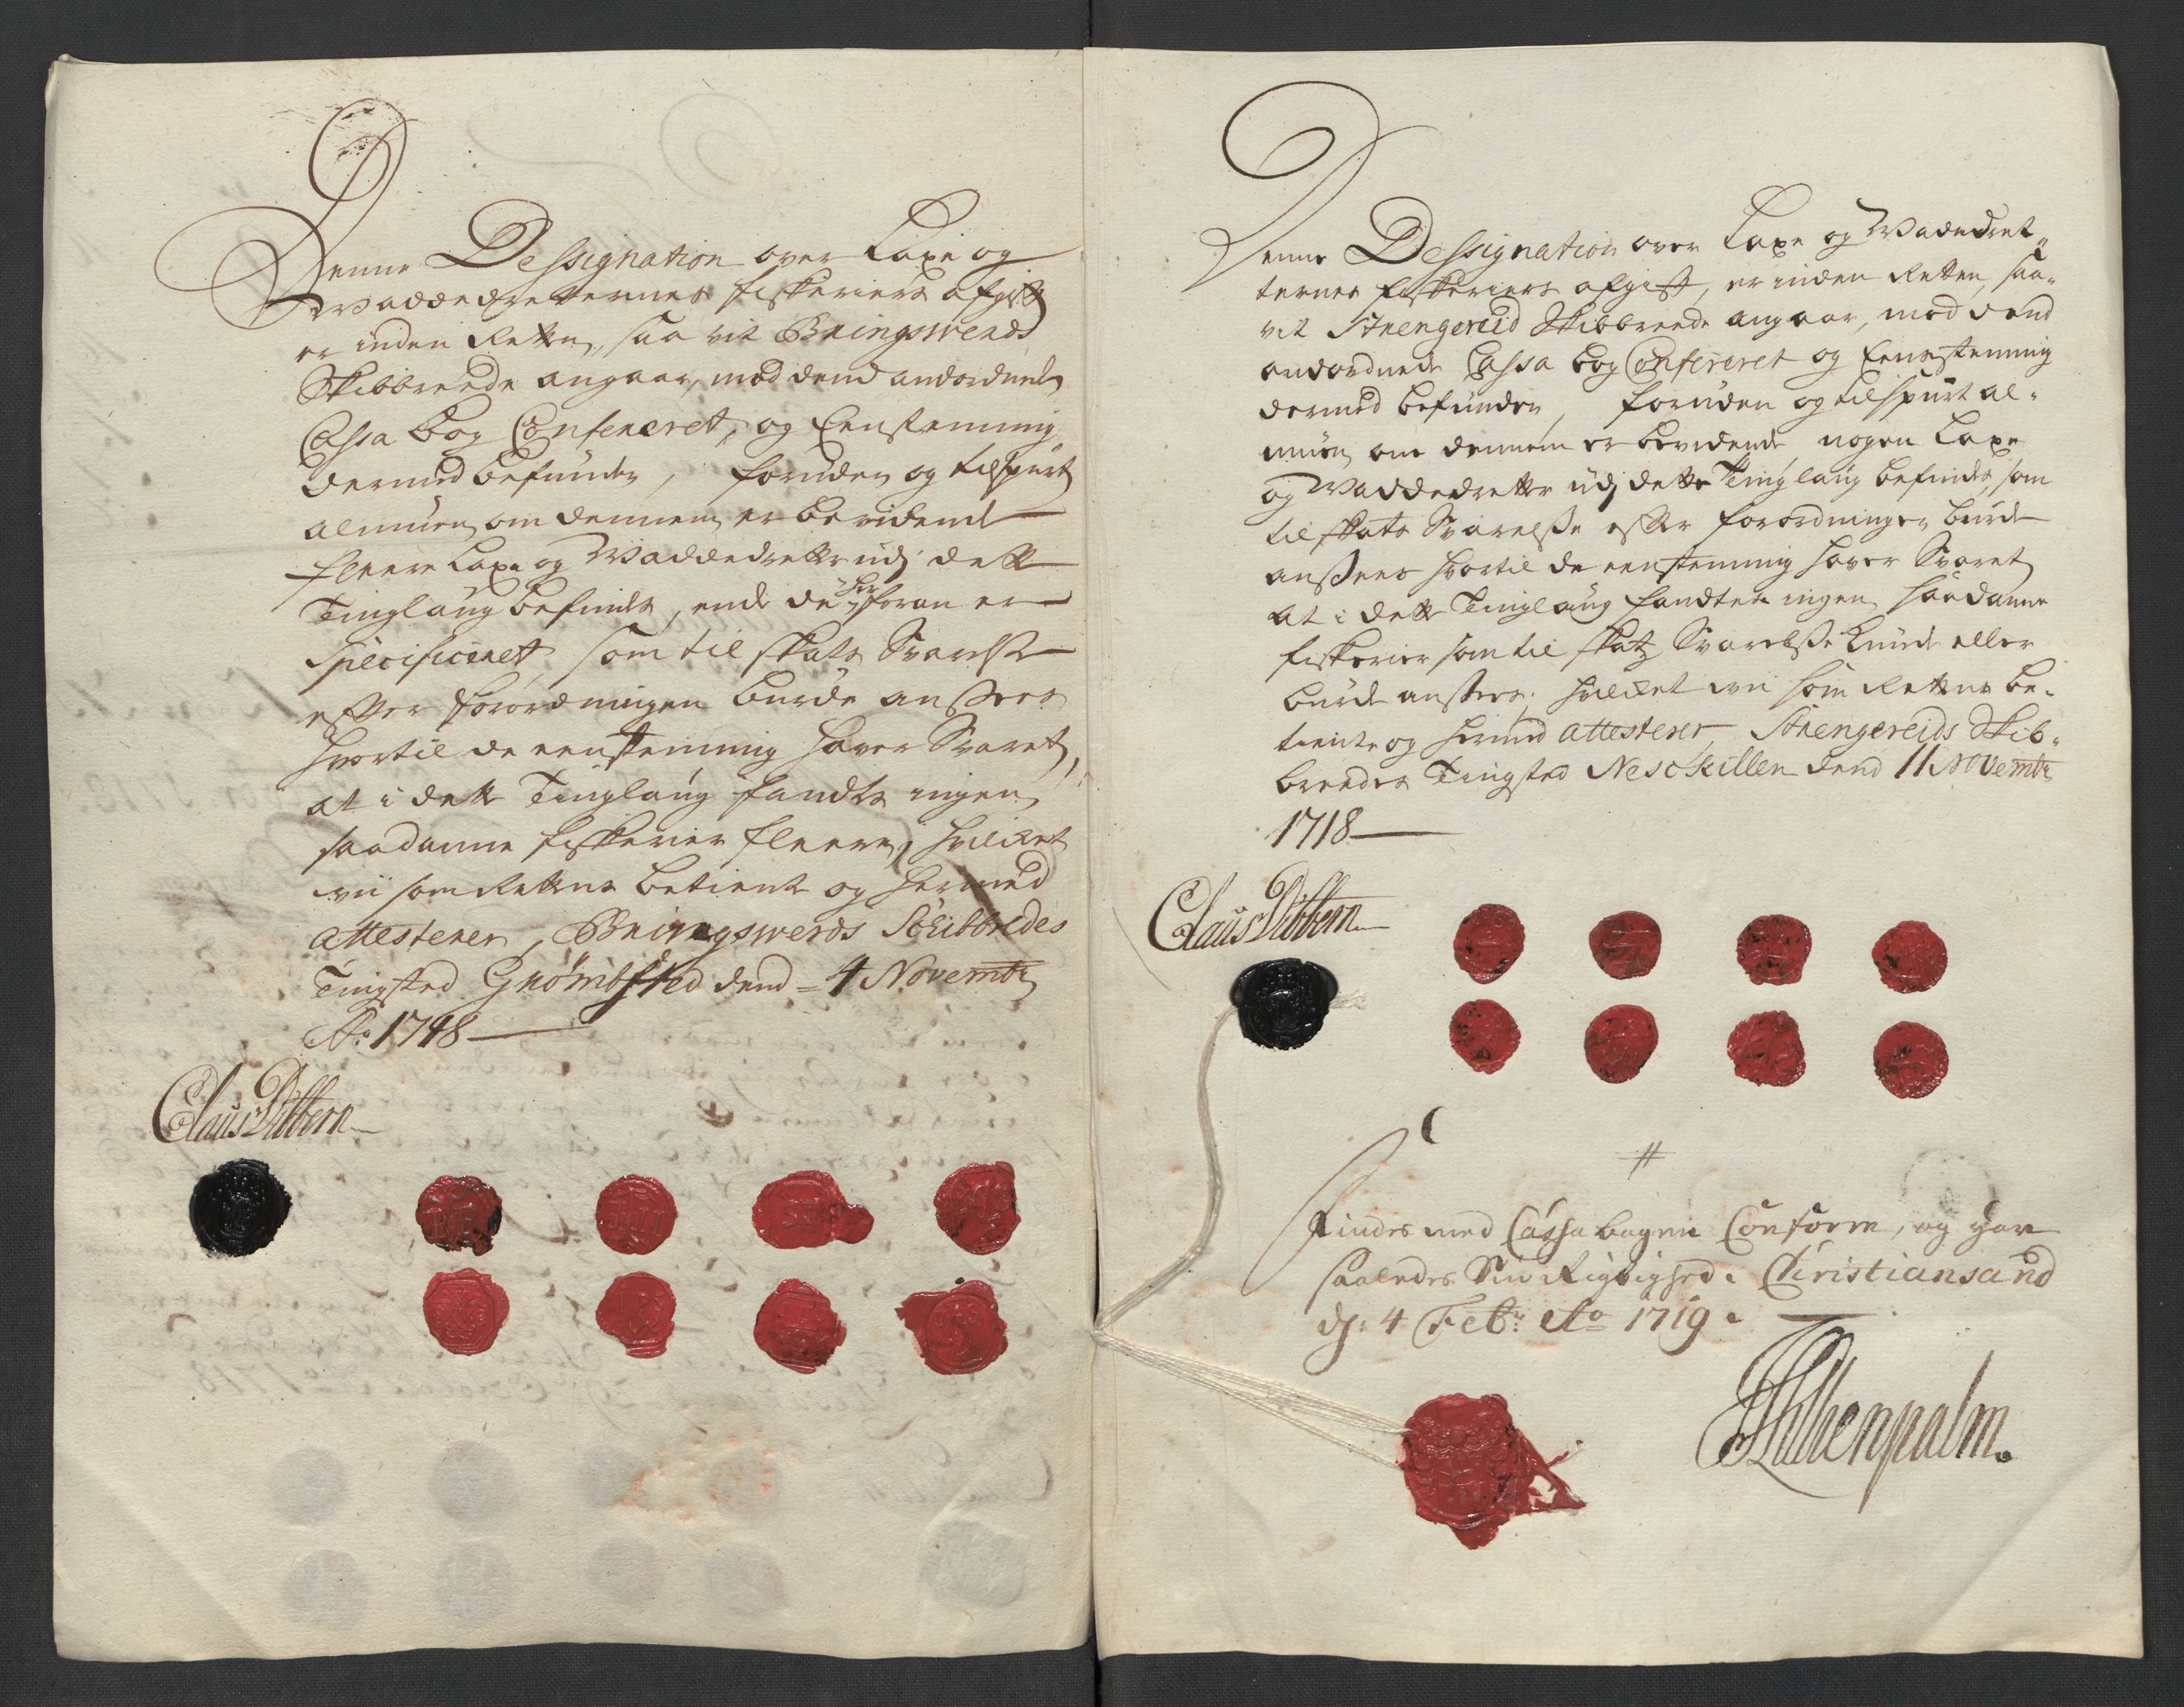 Denne Dessignation over Laxe og
Waddedretternes fiskeriers afgift
er inden Retten, saa vit Bringsverds
Skibbreede angaar, mod dend anordnede
Cassa bog Confereret, og Eenstemmig
dermed befunden, foruden og tilspurt
almuen, om dennem er bevidende
fleere Laxe og Waddedretter udj dette
Tinglaug befindes, end de her foran er
Specificeret, som til skats Svarelse
efter forordningen burde ansees
hvortil de eenstemmig haver Svaret,
at i dette Tinglaug fandtes ingen
saadanne fiskerier fleere, hvilcket
vii som Rettens betiente og hermed
attesterer, Bringsverds Schibbredes
Tingsted Grömbsted dend 4 Novembr
Ao: 1718
Claus Dibbern
Denne Dessignation over Laxe og Wadedret„
ternes fiskeriers afgift, er inden Retten, saa„
vit Strengereid Skibbreede angaar, mod dend
anordnede Cassa bog Confereret og Eenstemmig
dermed befunden, foruden og tilspurt al„
muen om dennem er bevidende, nogen Laxe
og Waddedretter udj dette Tinglaug befindes, som
til skats Svarelsse efter forordningen burde
ansees hvortil de eenstemmig haver Svaret
at i dette Tinglaug fandtes ingen saadanne
fiskerier som til skatz Svarelsse kunde eller
burde ansees, hvilcket vii som Rettens be„
tiente og hermed attesterer, Strengereids Skib„
breedes Tingsted Neskillen dend 11 Novembr
1718
Claus Dibbern
Findes med Cassa bogen Conform, og har
saaledes Sin Rigtighed. Christiansand
dj: 4 Febr: Ao 1719.
Tillienpalm.